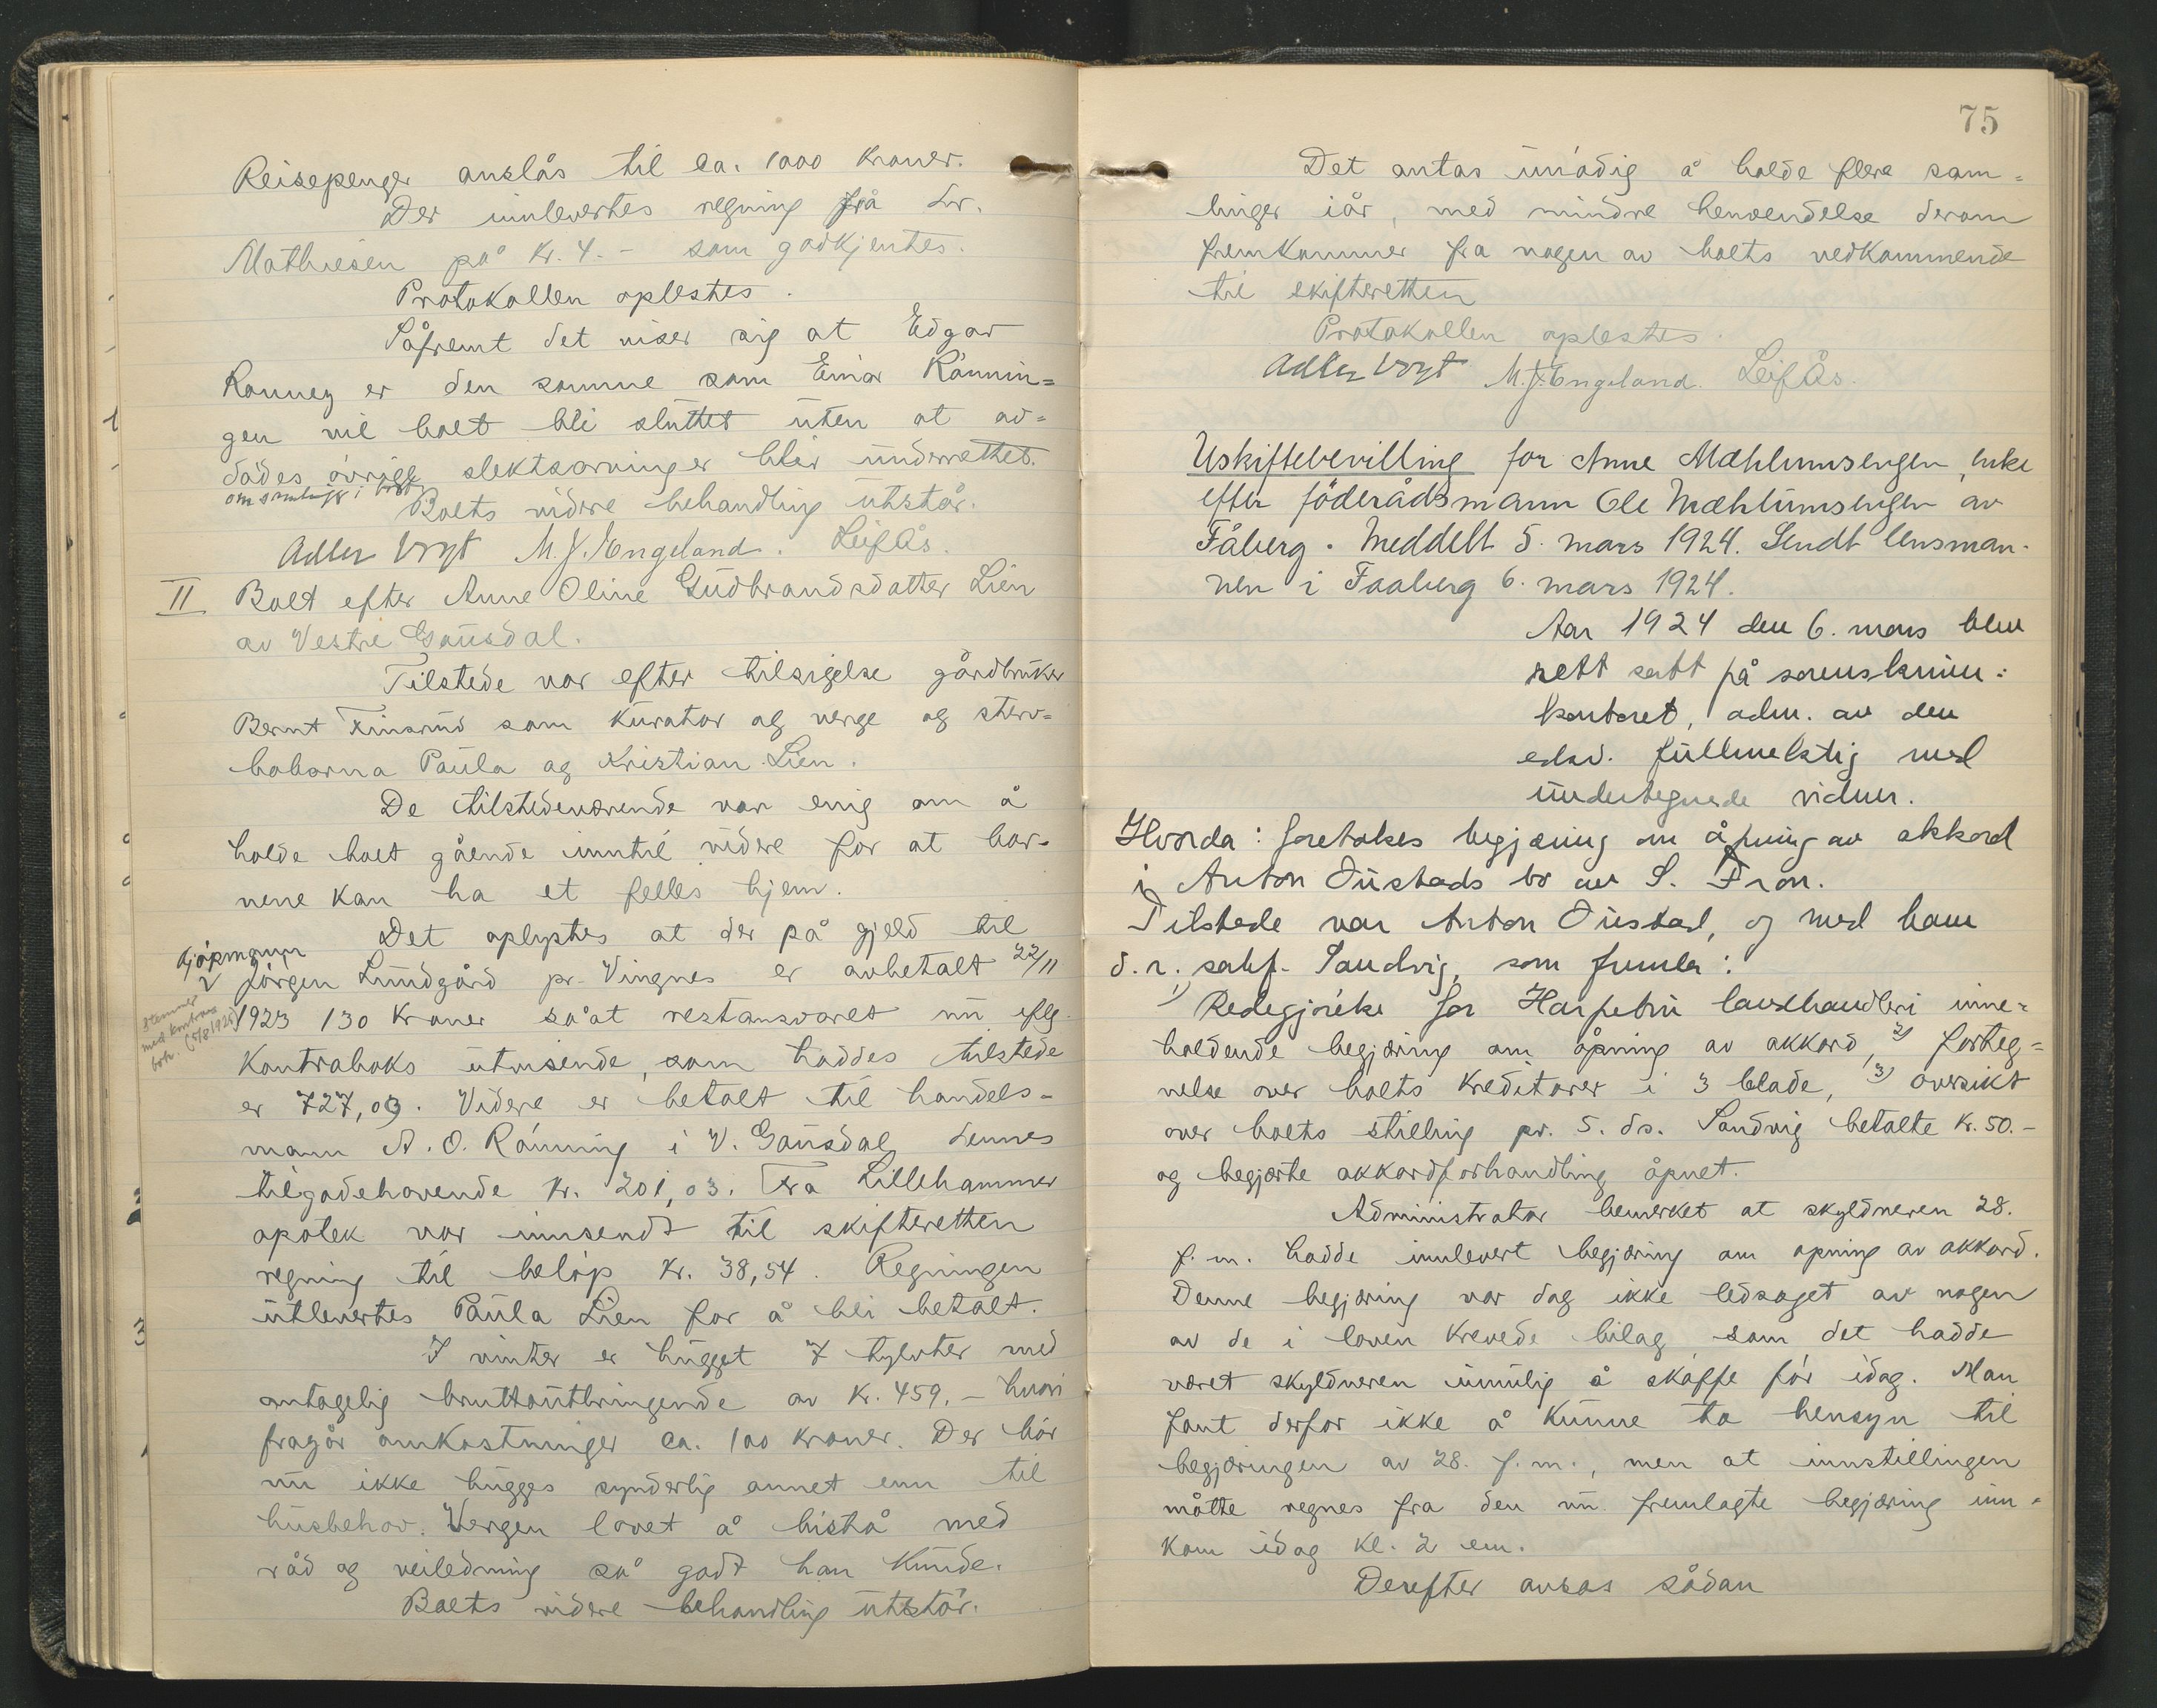 Reisepenger anslås til ca. 1000 kroner.
Der innlevertes regning fra Lr.
Mathiesen på kr. 4.- som godkjentes.
Protokollen oplestes.
Såfremt det viser sig at Edgar
Ronney er den samme som Einar Rönnin=
gen vil boet bli sluttet uten at av=
dödes övrige slektsarvinger blir underrettet.
om samling i boet
Boets videre behandling utstår.
Adler Vogt M. J. Engeland. Leif Ås.
II Boet efter Anne Oline Gudbrandsdatter Lien
av Vestre Gausdal.
Tilstede var efter tilsigelse gårdbruker
Bernt Finsrud som kurator og verge og sterv=
boborna Paula og Kristian Lien.
De tilstedeværende var enig om å
holde boet gående inntil videre for at bar-
nene kan ha et felles hjem.
Det oplystes at der på gjeld til
kjöpmann
V Jörgen Lundgård pr. Vingnes er avbetalt 22/11
stemmer
med kontra
bok. (5/8 1925)
1923 130 kroner så at restansvaret nu eflg.
kontraboks utvisende, som haddes tilstede
er 727,03. Videre er betalt til handels-
mann A. O. Rönning i V. Gausdal dennes
tilgodehavende kr. 201,03. Fra Lillehammer
apotek var innsendt til skifteretten
regning til belöp kr. 38,54. Regningen
utlevertes Paula Lien for å bli betalt.
I vinter er hugget 7 tylvter med
antagelig bruttoutbringende av kr. 459,- hvori
fragår omkostninger ca. 100 kroner. Der bör
nu ikke hugges synderlig annet enn til
husbehov. Vergen lovet å bistå med
råd og veiledning så godt han kunde.
Boets videre behandling utstår.
75
Det antas unödig å holde flere sam=
linger iår, med mindre henvendelse derom
fremkommer fra nogen av boets vedkommende
til skifteretten
Protokollen oplestes.
Adler Vogt M. J. Engeland. Leif Ås.
Uskiftebevilling for Anne Mæhlumsengen, enke
efter föderådsmann Ole Mæhlumsengen av
Fåberg. Meddelt 5. mars 1924. Sendt lensman-
nen i Faaberg 6. mars 1924.
Aar 1924 den 6. mars blev
rett satt på sorenskriver:
kontoret, adm. av den
edsv. fullmektig med
undertegnede vidner.
Hvorda: foretokes begjæring om åpning av akkord
i Anton Öustads bo av S. Fron.
Tilstede var Anton Öustad, og med ham
o. r. sakf. Sandvig, som fremla:
1) Redegjörelse for Harpebru landhandleri inne=
holdende begjæring om åpning av akkord, 2) forteg=
nelse over boets kreditorer i 3 blade, 3) oversikt
over boets stilling pr. 5. ds. Sandvig betalte kr. 50.-
og begjærte akkordforhandling åpnet.
Administrator bemerket at skyldneren 28.
f.m. hadde innlevert begjæring om åpning av akkord.
Denne begjæring var dog ikke ledsaget av nogen
av de i loven krevede bilag som det hadde
været skyldneren umulig å skaffe för idag. Man
fant derfor ikke å kunne ta hensyn til
begjæringen av 28. f.m., men at innstillingen
måtte regnes fra den nu fremlagte begjæring inn-
kom idag kl. 2 em.
Derefter avsas sådan